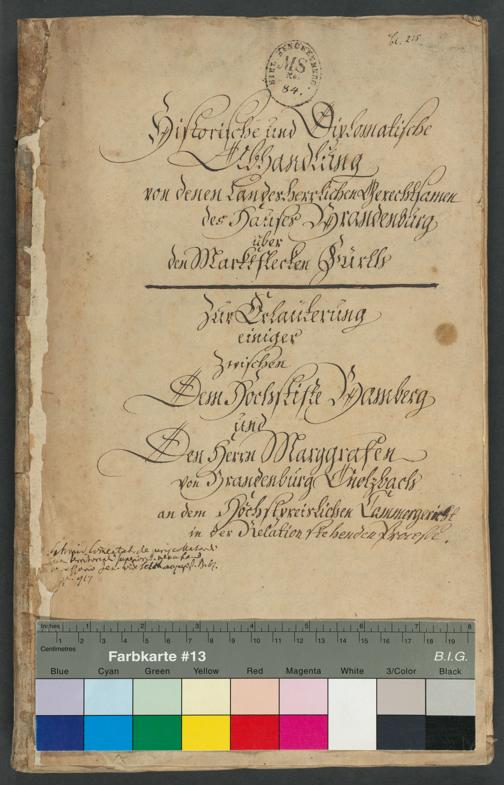 fc. 215.
BIBL. SENCKENBERG.
MS
No.
84.
Historische und Diplomatische
Abhandlung
von denen Landesherrlichen Gerechtsamen
des Hauses Brandenburg
über
den Marktflecken Fürth
Zur Erläuterung
einiger
zwischen
Dem Hochstifte Bamberg
und
Den Herrn Marggrafen
von Brandenburg Onolzbach
an dem Höchstpreislichen Cammergericht
in der Relation stehenden Processe.
p. 917.
Inches 1 2 3 4 5 6 7 8
Centimetres 1 2 3 4 5 6 7 8 9 10 11 12 13 14 15 16 17 18 19
Farbkarte #13 B.I.G.
Blue Cyan Green Yellow Red Magenta White 3/Color Black